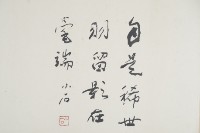 自是稀世
羽留影在
瑞 小石